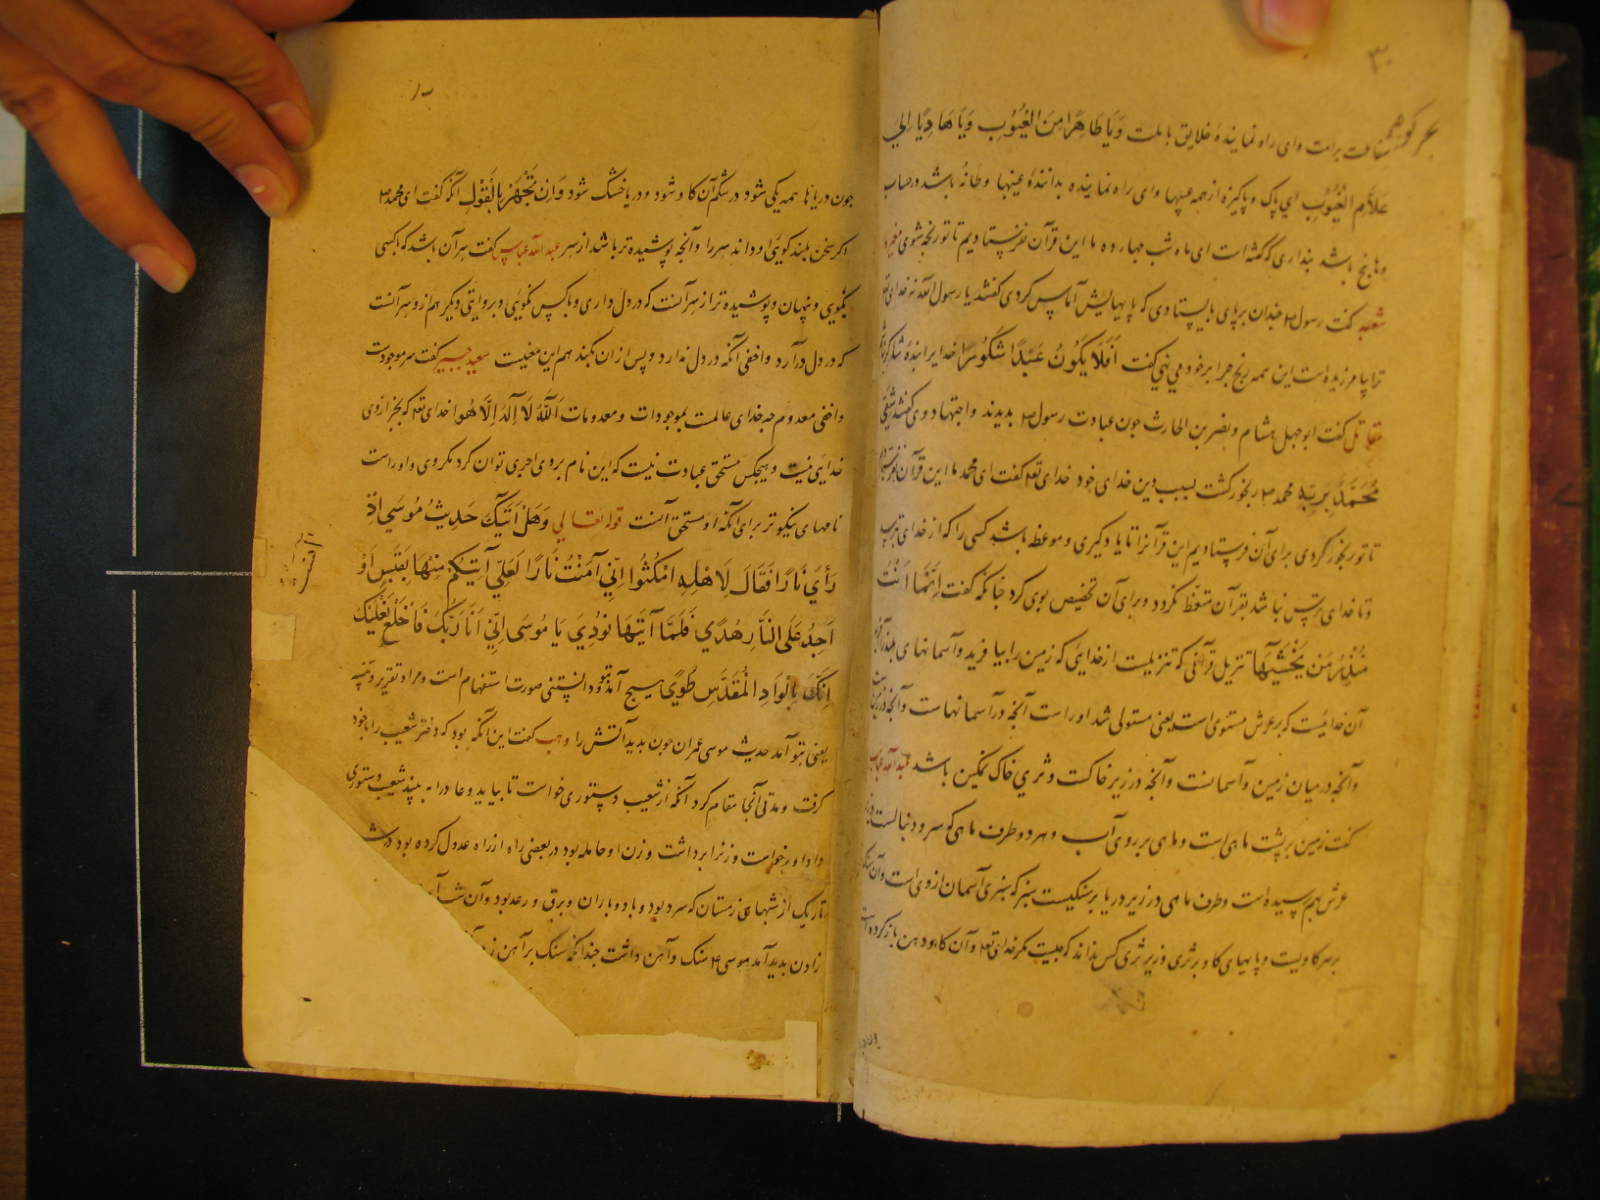 ۳۰
بحر گو هم
شفاعت برامت و ای راه نماینده خلایق با ملت وَیَا طَاهِرًا مِنَ الْعُیُوْبِ وَیَا هَادِیًا اِلیٰ
عَلَّامِ الْغُیُوْبِ ای پاک و پاکیزه از همه عیبها و ای راه نماینده بدانندهٔ غیبها و طا نُه باشد در حساب
و ها پنج باشد پنداری که گفته است ای ماه شب چهارده ما این قرآن نفرستادیم تا تو رنجه شوی
شعبه گفت رسول م چندان بر پای بایستادی که پایهایش آماس کردی گفتند یا رسول الله نه خدای تع
ترا بیامرزیده است این همه رنج چرا بر خود می نهی گفت اَفَلَا یَکُوْنُ عَبْدًا شَکُوْرًا خدایرا بندهٔ شاکر
مقاتل گفت ابوجهل هشام و نضر بن الحارث چون عبادت رسول م بدیدند و اجتهاد وی گفتند شَقِیَ
مُحَمَّدٌ بِرَبِّهِ محمد م رنجور گشت بسبب دین خدای خود خدای تع گفت ای محمد ما این قرآن
تا تو رنجور گردی برای آن فرستادیم این قرآنرا تا یادگیری و موعظه باشد کسی را که از خدای بترسد
و تا خدای ترس نباشد بقرآن متعظ نگردد و برای آن تخصیص بوی کرد چنانکه گفت اِنَّمَا اَنْتَ
مُنْذِرُ مَنْ یَخْشَیهَا تنزیل قرآنی که تنزیلست از خدائی که زمین را بیافرید و آسمانهای بلند
آن خدائیست که بر عرش مستوی است یعنی مستولی شد اوراست آنچه در آسمانهاست و آنچه در زمین
و آنچه در میان زمین و آسمانست و آنچه در زیر خاکست و ثری خاک نمگین باشد عبد الله عباس
گفت زمین بر پشت ماهی است و ماهی بر روی آب و هر دو طرف ماهی که سر و دنبالست
عرش بهم رسیده است و طرف ماهی در زیر دریا بر سنگیست سبز که سبزی آسمان از وی است و آن سنگ
بر سر گاویست و پایهای گاو بر ثری و زیر ثری کس نداند که چیست مگر خدای تع و آن گاو دهن باز کرده است
چون دریاها همه یکی شود در شکم آن گاو شود و دریا خشک شود وَاِنْ تَجْهَرْ بِالْقَوْلِ آنگه گفت ای محمد م
اگر سخن بلند گویی او داند سر را و آنچه پوشیده تر باشد از سر عبد الله عباس گفت سر آن باشد که با کسی
بگویی و پنهان و پوشیده تر از سر آنست که در دل داری و با کس نگویی و بروایتی دیگر هم از و سر آنست
که در دل درآرد و اخفی آنکه در دل ندارد و پس از آن بکند هم این معنیست سعید جبیر گفت سر موجودست
و اخفی معدوم چه خدای عالمست بموجودات و معدومات اَللّٰهُ لَا اِلٰهَ اِلَّا هُوَ خدای تع که بجز از وی
خدایی نیست و هیچکس مستحق عبادت نیست که این نام بر وی اجری توان کرد مگر وی و اوراست
نامهای نیکوتر برای آنکه او مستحق آنست قوله تعالی وَهَلْ اَتٰیکَ حَدِیْثُ مُوْسٰی اِذْ
رَأیٰ نَارًا فَقَالَ لِاَهْلِهِ امْکُثُوا اِنِّی آنَسْتُ نَارًا لَعَلِّی آتِیْکُمْ مِنْهَا بِقَبَسٍ اَوْ
اَجِدُ عَلَی النَّارِ هُدًی فَلَمَّا اَتٰیهَا نُوْدِیَ یَا مُوْسٰی اِنِّی اَنَا رَبُّکَ فَاخْلَعْ نَعْلَیْکَ
اِنَّکَ بِالْوَادِ الْمُقَدَّسِ طُوًی هیچ آمد بتو و دانستنی صورت استفهام است و مراد تقریر و تنبیه
یعنی بتو آمد حدیث موسی عمران چون بدید آتش را وهب گفت این آنگه بود که دختر شعیب را با خود
گرفت و مدتی آنجا مقام کرد آنگه از شعیب دستوری خواست تا بیاید و مادر را به بیند شعیب دستوری
داد او برخواست و زنرا برداشت و زن او حامله بود در بعضی راه از راه عدول کرده بود در شبی
تاریک از شبهای زمستان که سرد بود و باد و باران و برق و رعد بود و آن شب
زادن بدید آمد موسی ع سنگ و آهن داشت چندانکه سنگ بر آهن